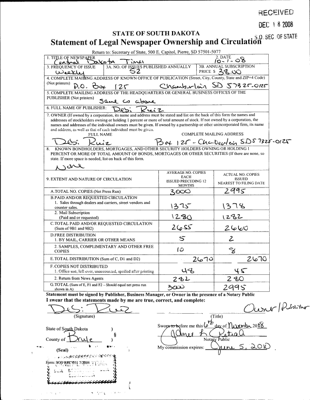 RECEIVED
DEC 18 2008
S.D. SEC OF STATE
STATE OF SOUTH DAKOTA
Statement of Legal Newspaper Ownership and Circulation
Return to: Secretary of State, 500 E. Capitol, Pierre, SD 57501-5077
1. TITLE OF NEWSPAPER
Central Dakota Times
2. DATE
10-1-08
3. FREQUENCY OF ISSUE
weekly
3A. NO. OF ISSUES PUBLISHED ANNUALLY
52
3B. ANNUAL SUBSCRIPTION
PRICE $ 38.00
4. COMPLETE MAILING ADDRESS OF KNOWN OFFICE OF PUBLICATION (Street, City, County, State and ZIP+4 Code)
(Not printers)
P.O. Box 125 Chamberlain SD 57325-0125
5. COMPLETE MAILING ADDRESS OF THE HEADQUARTERS OR GENERAL BUSINESS OFFICES OF THE
PUBLISHER (Not printers)
Same as above
6. FULL NAME OF PUBLISHER:
Debi Ruiz
7. OWNER (If owned by a corporation, its name and address must be stated and
FULL NAME
COMPLETE MAILING ADDRESS
Debi Ruiz
Box 125 - Chamberlain SD 57325-0125
8. KNOWN BONDHOLDERS, MORTGAGEES, AND OTHER SECURITY HOLDERS OWNING OR HOLDING 1
PERCENT OR MORE OF TOTAL AMOUNT OF BONDS, MORTGAGES OR OTHER SECURITIES (If there are none, so
state. If more space is needed, list on back of this form.
None
9. EXTENT AND NATURE OF CIRCULATION
AVERAGE NO. COPIES
EACH
ISSUED PRECEDING 12
MONTHS
ACTUAL NO. COPIES
ISSUED
NEAREST TO FILING DATE
A. TOTAL NO. COPIES (Net Press Run)
3000
2995
B. PAID AND/OR REQUESTED CIRCULATION
1. Sales through dealers and carriers, street vendors and
counter sales.
1375
1378
2. Mail Subscription
(Paid and or requested)
1280
1282
C. TOTAL PAID AND/OR REQUESTED CIRCULATION
(Sum of 9B1 and 9B2)
2655
2660
D. FREE DISTRIBUTION
1. BY MAIL, CARRIER OR OTHER MEANS
5
2
2. SAMPLES, COMPLIMENTARY AND OTHER FREE
COPIES
10
8
E. TOTAL DISTRIBUTION (Sum of C, D1 and D2)
2670
2670
F. COPIES NOT DISTRIBUTED
1. Office use, left over, unaccounted, spoiled after printing
48
45
2. Return from News Agents
282
280
G. TOTAL (Sum of E, F1 and F2 - Should equal net press run
shown in A)
3000
2995
Statement must be signed by Publisher, Business Manager, or Owner in the presence of a Notary Public
I swear that the statements made by me are true, correct, and complete:
Debi Ruiz
(Signature)
Owner/Publisher
(Title)
State of South Dakota )
County of Brule )
(Seal)
Sworn to before me this 6th day of November 2008
Notary Public
My commission expires: June 5, 2010